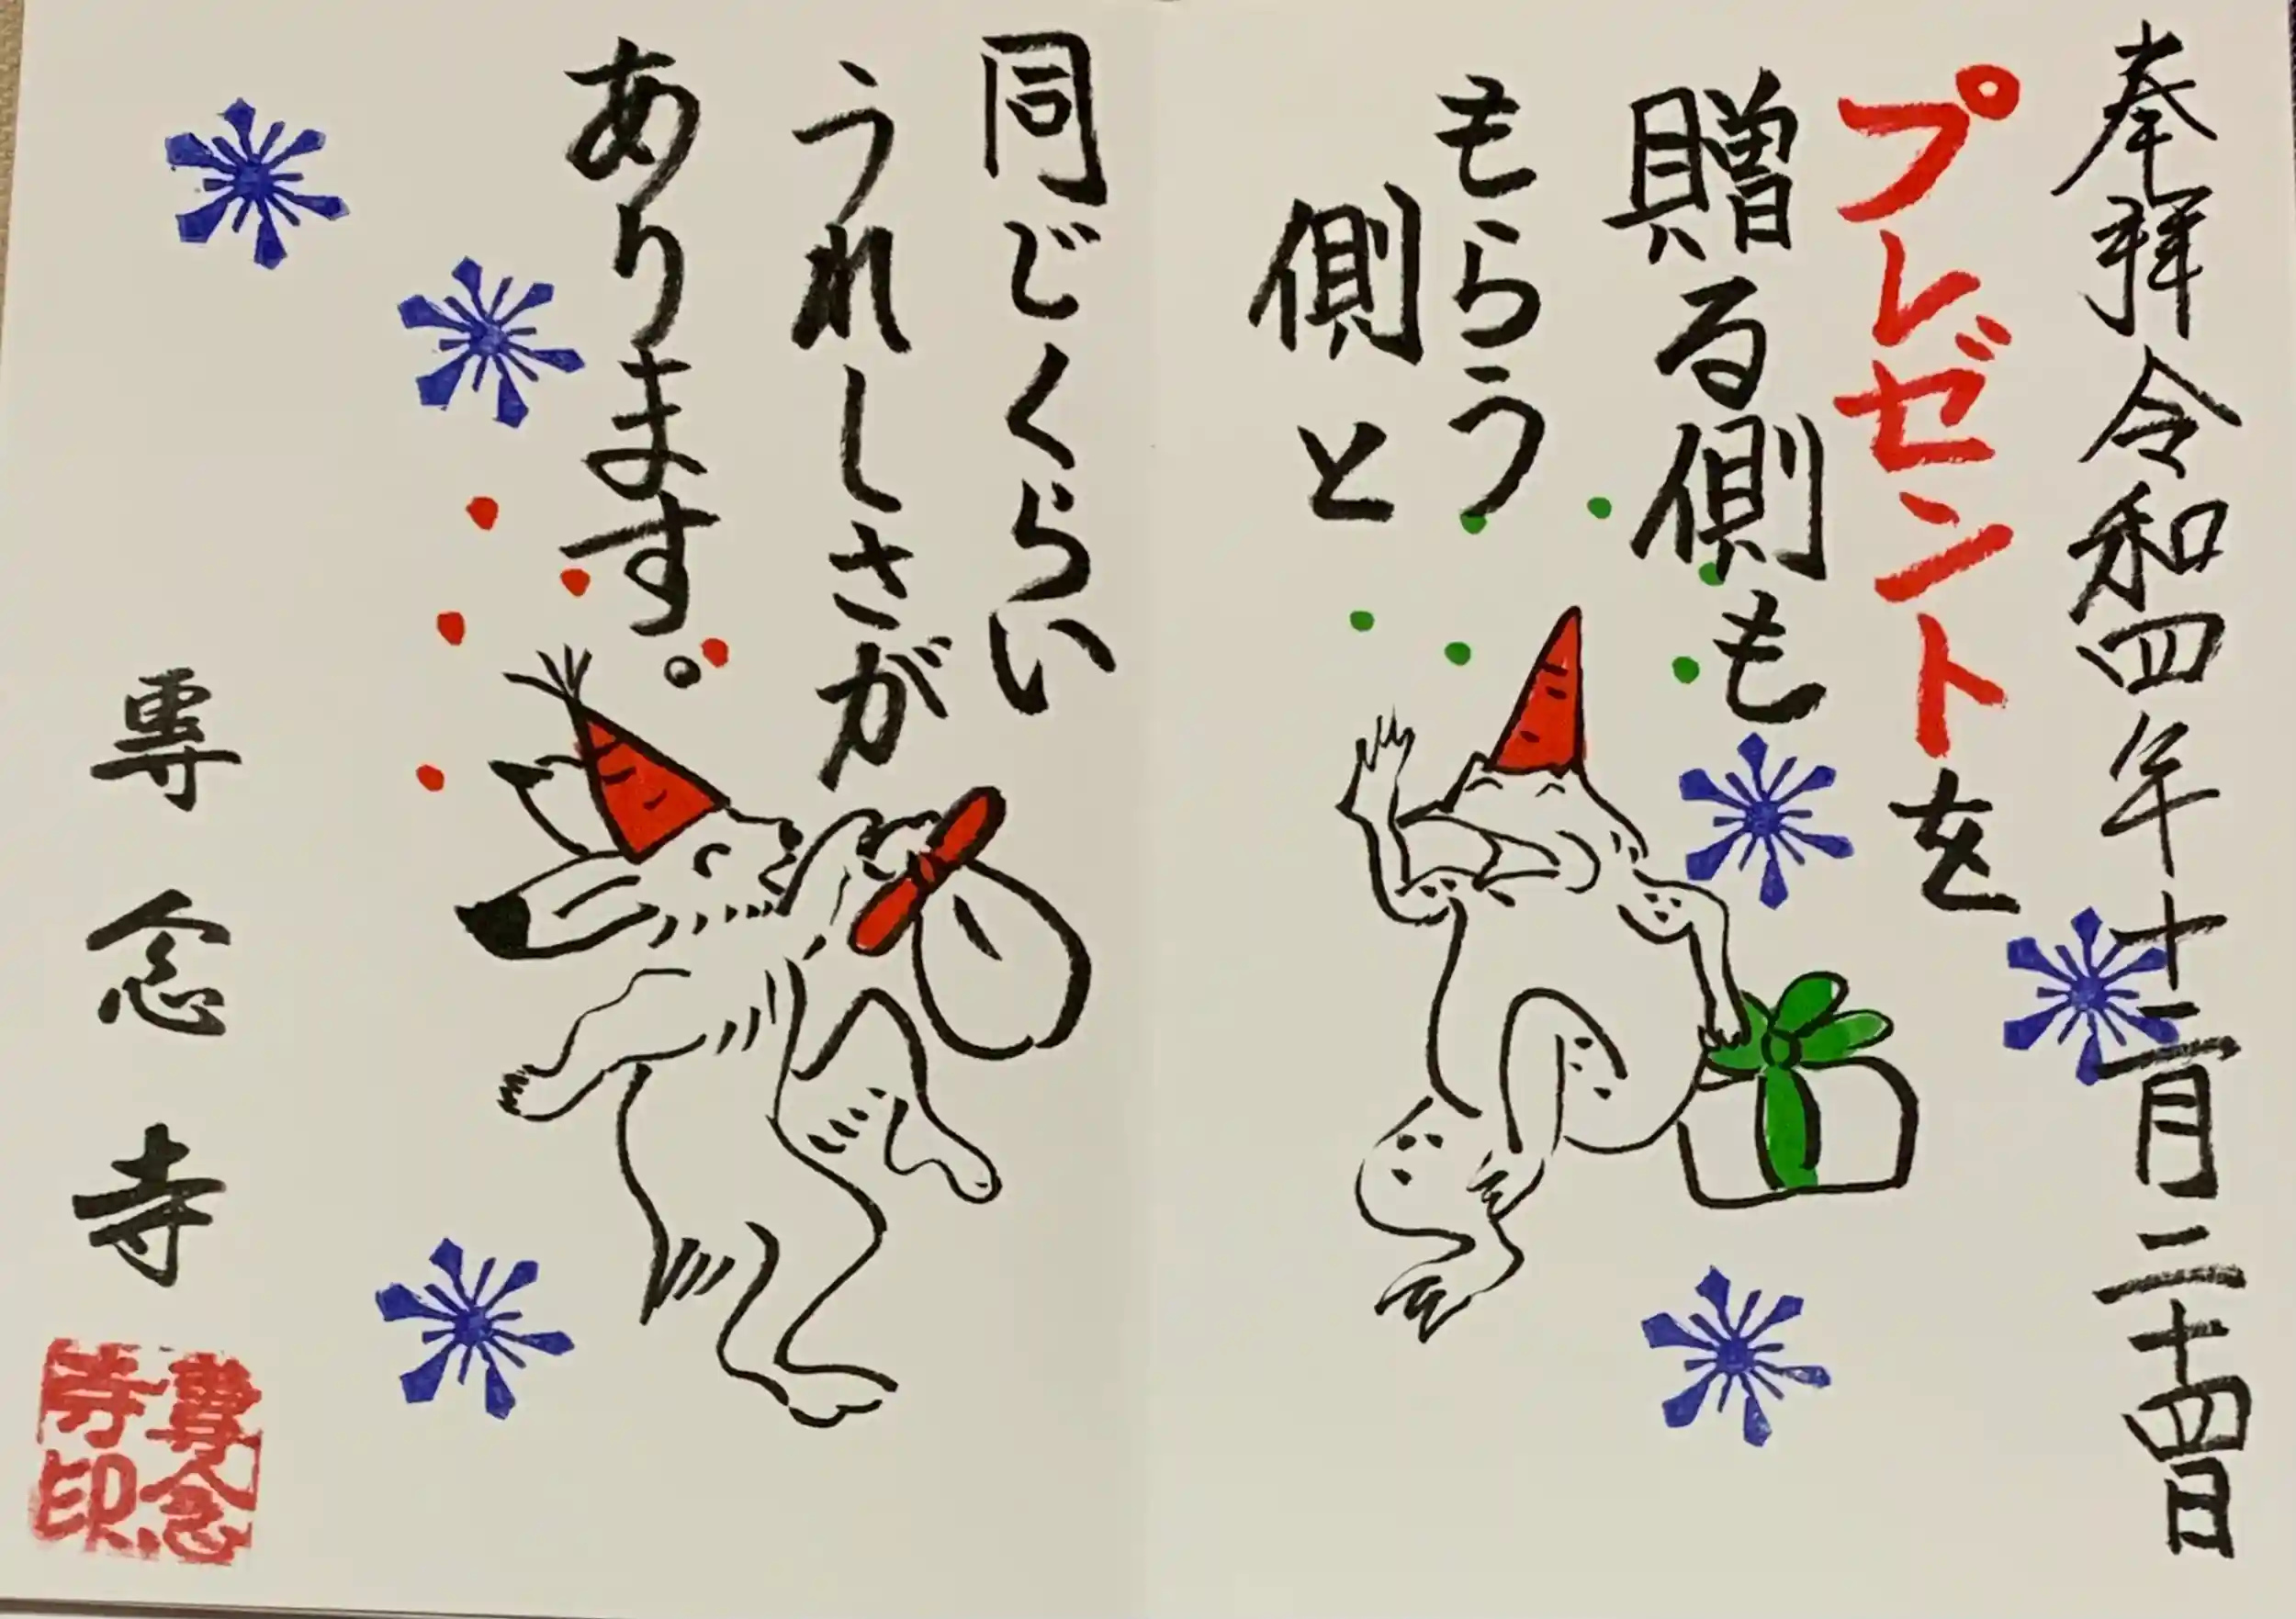 奉拝 令和四年十二月二十四日
プレゼントを
贈る側も
もらう
側と
同じくらい
うれしさが
あります。
専念寺
専念
寺印